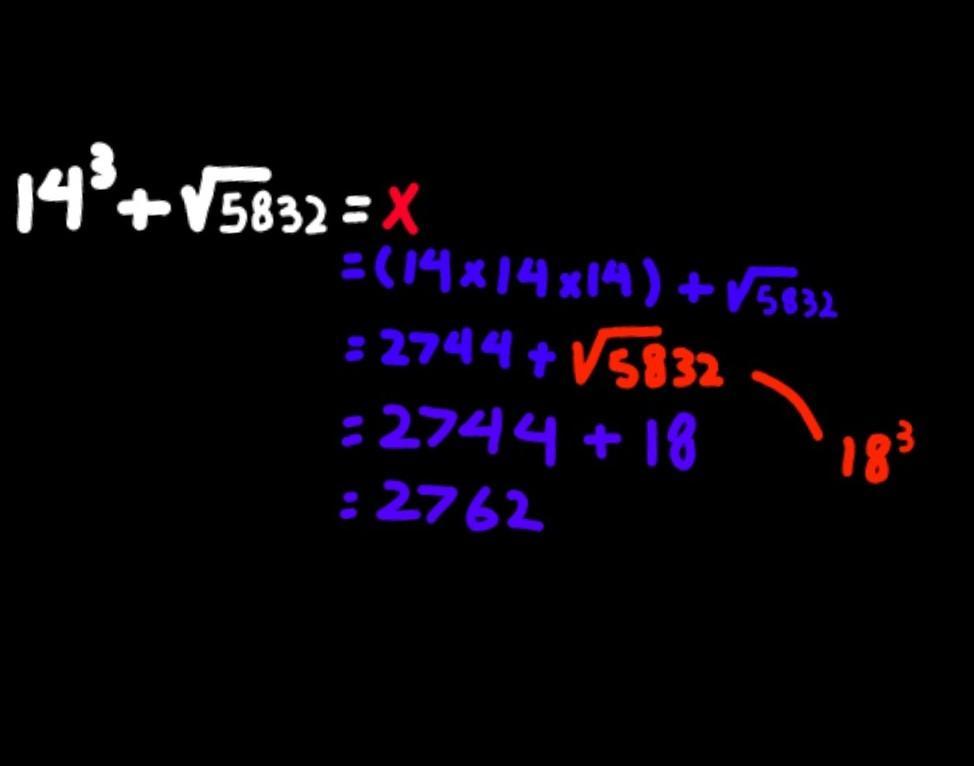 14³ + √5832 = x
= (14 x 14 x 14) + √5832
= 2744 + √5832
18³
= 2744 + 18
= 2762